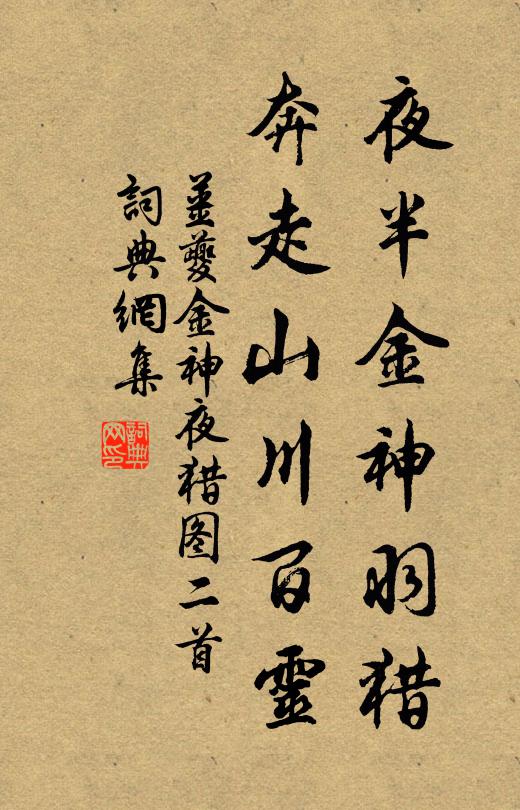 夜半金神羽猎
奔走山川百靈
姜夔金神夜猎图二首
詞典網集
詞典网印